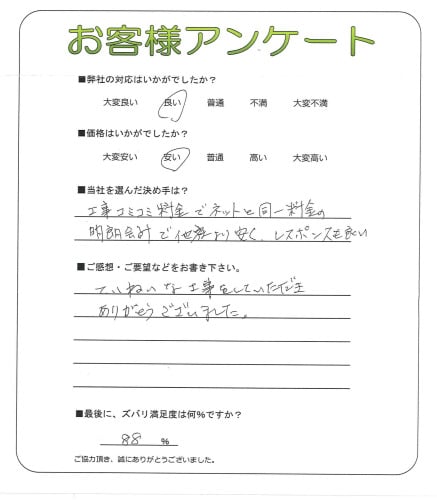 お客様アンケート
■弊社の対応はいかがでしたか?
大変良い 良い 普通 不満 大変不満
■価格はいかがでしたか?
大変安い 安い 普通 高い 大変高い
■当社を選んだ決め手は?
工事コミコミ料金でネットと同一料金の
明朗会計で他店より安く、レスポンスも良い
■ご感想・ご要望などをお書き下さい。
ていねいな工事をしていただき
ありがとうございました。
■最後に、ズバリ満足度は何%ですか?
88 %
ご協力頂き、誠にありがとうございました。